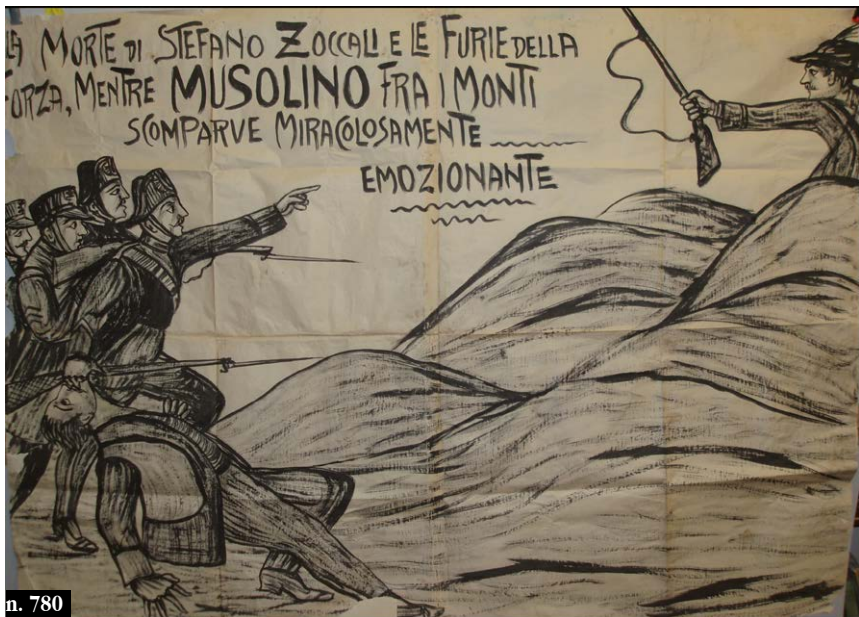 LA MORTE DI STEFANO ZOCCALI E LE FURIE DELLA
FORZA, MENTRE MUSOLINO FRA I MONTI
SCOMPARVE MIRACOLOSAMENTE
EMOZIONANTE
n. 780